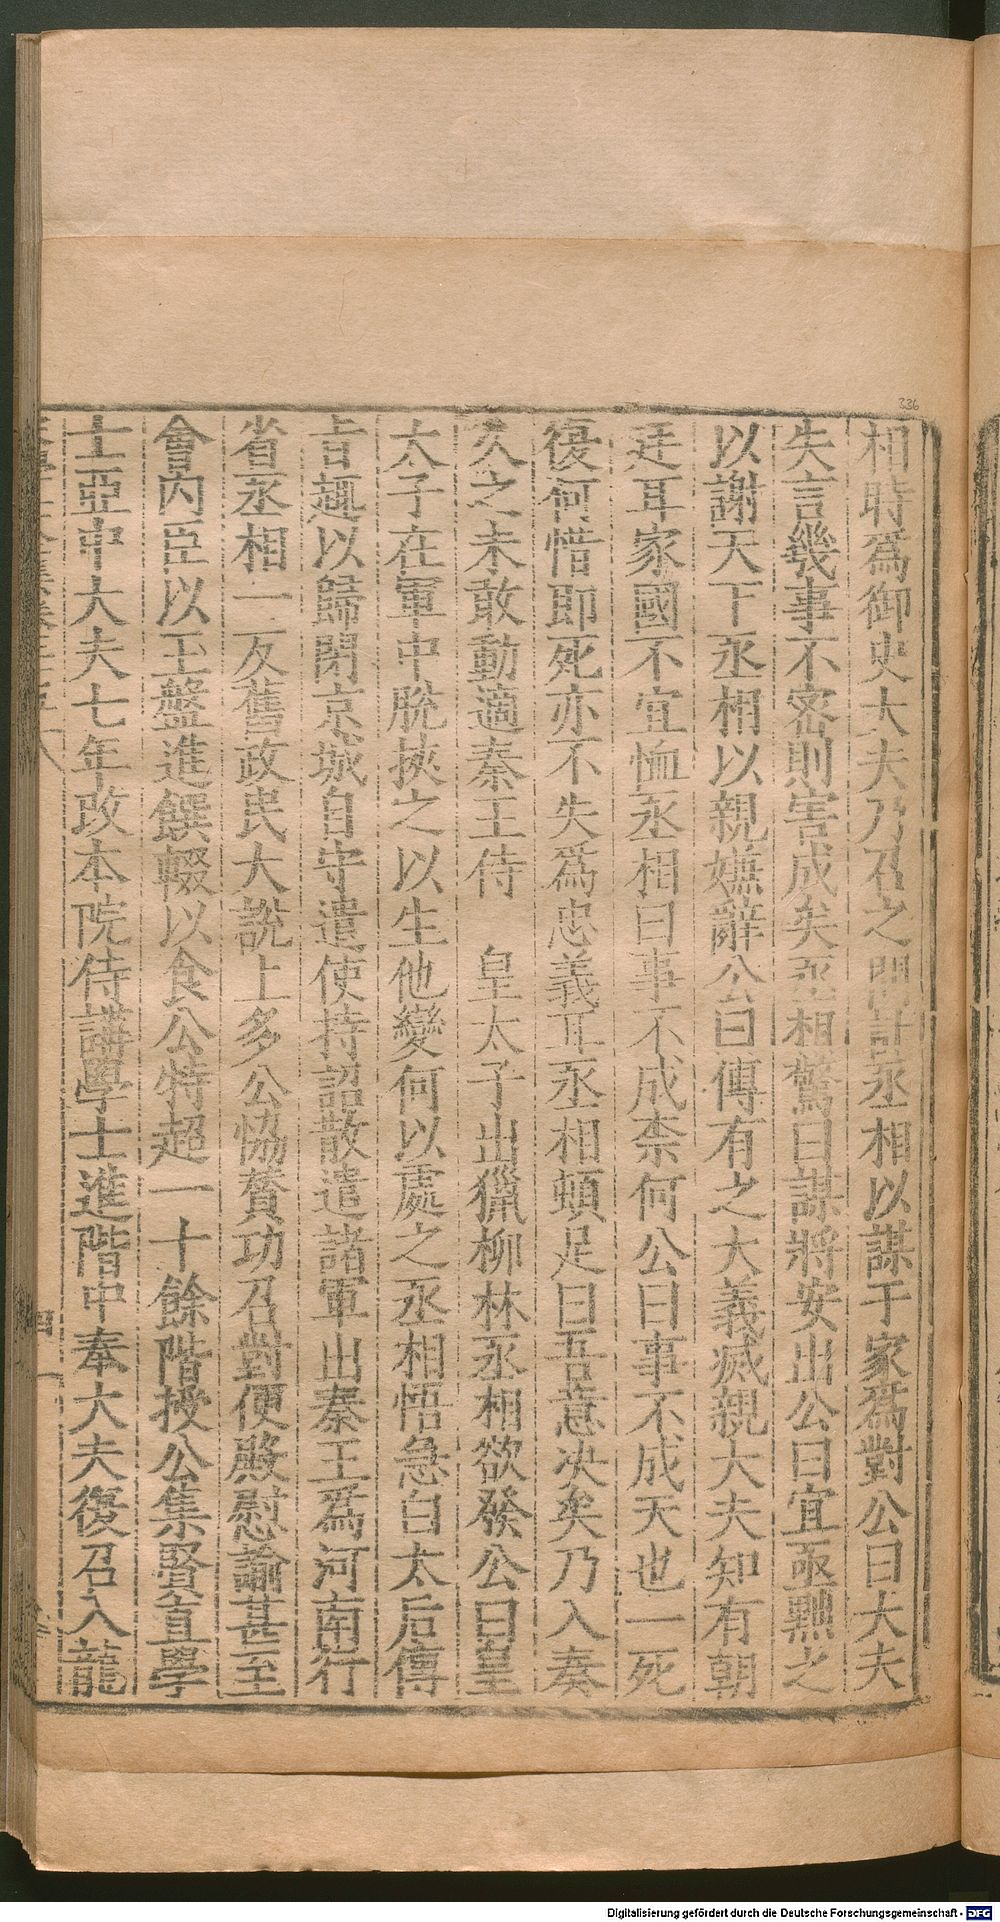 336
相時爲御史大夫乃召之問計丞相以謀于家爲對公曰大夫
失言幾事不密則害成矣丞相驚曰謀將安出公曰宜亟黜之
以謝天下丞相以親嫌辭公曰傳有之大義滅親大夫知有朝
廷耳家國不宜恤丞相曰事不成柰何公曰事不成天也一死
復何惜即死亦不失爲忠義耳丞相頓足曰吾意決矣乃入奏
久之未敢動適秦王侍　皇太子出獵柳林丞相欲發公曰皇
太子在軍中脫挾之以生他變何以處之丞相悟急白太后傳
旨趣以歸閉京城自守遣使持詔散遣諸軍出秦王爲河南行
省丞相一反舊政民大說上多公恊贊功召對便殿慰諭甚至
會內臣以玉盤進饌輟以食公特超一十餘階授公集賢直學
士亞中大夫七年改本院侍講學士進階中奉大夫復召入龍
Digitalisierung gefördert durch die Deutsche Forschungsgemeinschaft - DFG